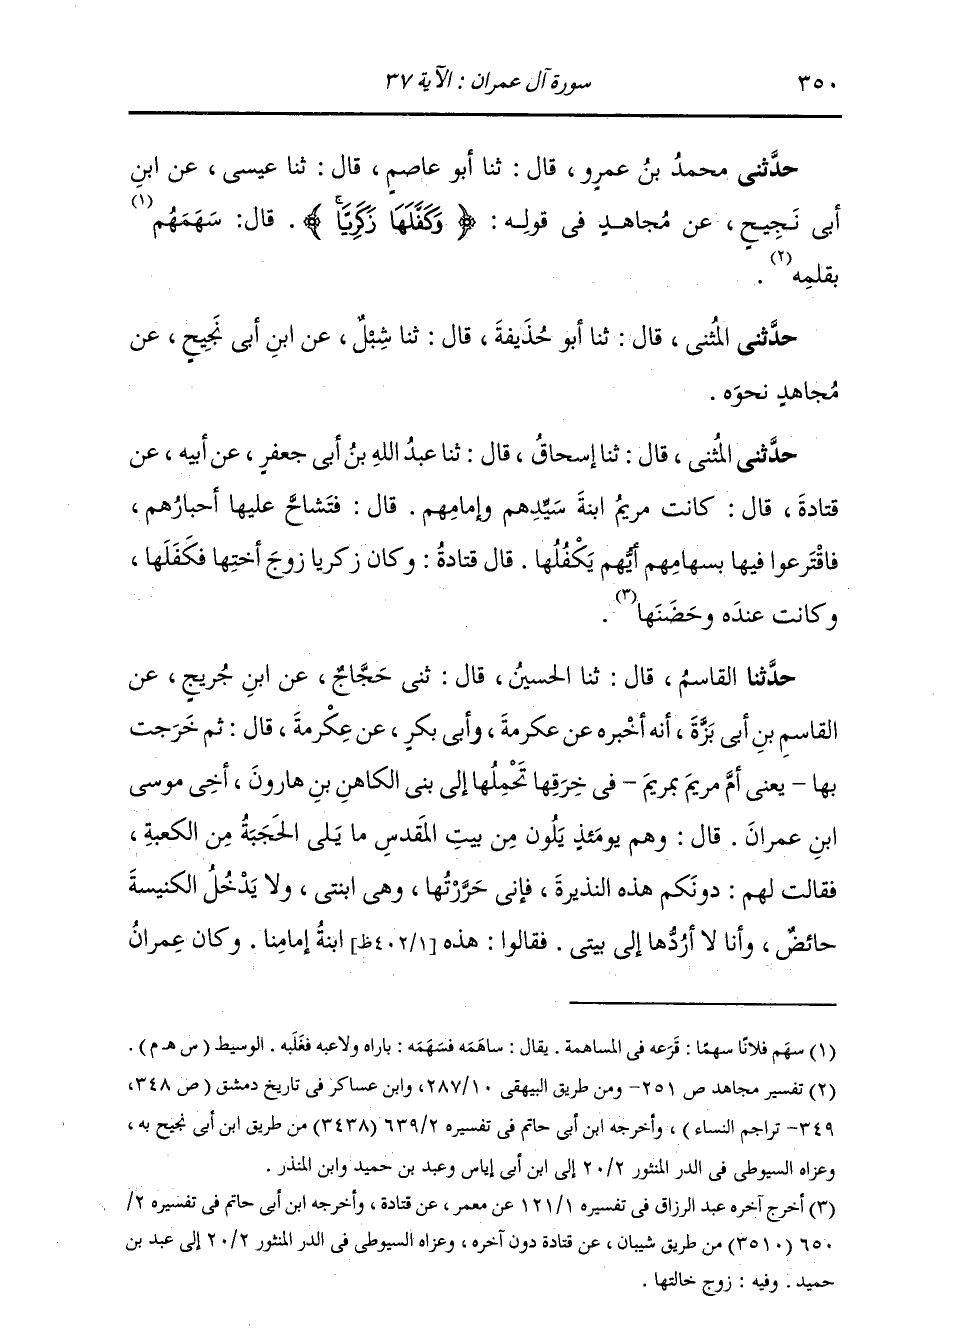 ٣٥٠ سورة آل عمران : الآية ٣٧
حدَّثنى محمدُ بنُ عمرٍو ، قال : ثنا أبو عاصمٍ ، قال : ثنا عيسى ، عن ابنِ
أبى نَجِيحٍ ، عن مُجاهدٍ فى قولِه : ﴿ وَكَفَّلَهَا زَكَرِيَّاۖ ﴾ . قال : سَهَمَهُم(١)
بقلمِه(٢) .
حدَّثنى المُثنى ، قال : ثنا أبو حُذَيفةَ ، قال : ثنا شِبْلٌ ، عن ابنِ أبى نَجِيحٍ ، عن
مُجاهدٍ نحوَه .
حدَّثنى المُثنى ، قال : ثنا إسحاقُ ، قال : ثنا عبدُ اللهِ بنُ أبى جعفرٍ ، عن أبيه ، عن
قتادةَ ، قال : كانت مريمُ ابنةَ سَيِّدِهم وإمامِهم . قال : فتَشاحَّ عليها أحبارُهم ،
فاقْتَرعوا فيها بسهامِهم أيُّهم يَكْفُلُها . قال قتادةُ : وكان زكريا زوجَ أختِها فكَفَلَها ،
وكانت عندَه وحَضَنَها(٣) .
حدَّثنا القاسمُ ، قال : ثنا الحسينُ ، قال : ثنى حَجَّاجٌ ، عن ابنِ جُريجٍ ، عن
القاسمِ بنِ أبى بَزَّةَ ، أنه أخْبره عن عكرمةَ ، وأبى بكرٍ ، عن عِكْرمةَ ، قال : ثم خَرَجت
بها – يعنى أمَّ مريمَ بمريمَ – فى خِرَقِها تَحْمِلُها إلى بنى الكاهنِ بنِ هارونَ ، أخِى موسى
ابنِ عمرانَ . قال : وهم يومَئذٍ يَلُون مِن بيتِ المَقدسِ ما يَلى الحَجَبَةُ مِن الكعبةِ ،
فقالت لهم : دونَكم هذه النذيرةَ ، فإنى حَرَّرْتُها ، وهى ابنتى ، ولا يَدْخُلُ الكنيسةَ
حائضٌ ، وأنا لا أرُدُّها إلى بيتى . فقالوا : هذه [٤٠٢/١ظ] ابنةُ إمامِنا . وكان عِمرانُ
(١) سهَم فلانًا سهمًا : قَرَعه فى المساهمة . يقال : ساهَمَه فسَهَمَه : باراه ولاعبه فغَلَبه . الوسيط ( س هـ م ) .
(٢) تفسير مجاهد ص ٢٥١– ومن طريق البيهقى ٢٨٧/١٠، وابن عساكر فى تاريخ دمشق ( ص ٣٤٨،
٣٤٩– تراجم النساء ) ، وأخرجه ابن أبى حاتم فى تفسيره ٦٣٩/٢ (٣٤٣٨) من طريق ابن أبى نجيح به ،
وعزاه السيوطى فى الدر المنثور ٢٠/٢ إلى ابن أبى إياس وعبد بن حميد وابن المنذر .
(٣) أخرج آخره عبد الرزاق فى تفسيره ١٢١/١ عن معمر ، عن قتادة ، وأخرجه ابن أبى حاتم فى تفسيره ٢/
٦٥٠ (٣٥١٠) من طريق شيبان ، عن قتادة دون آخره ، وعزاه السيوطى فى الدر المنثور ٢٠/٢ إلى عبد بن
حميد . وفيه : زوج خالتها .